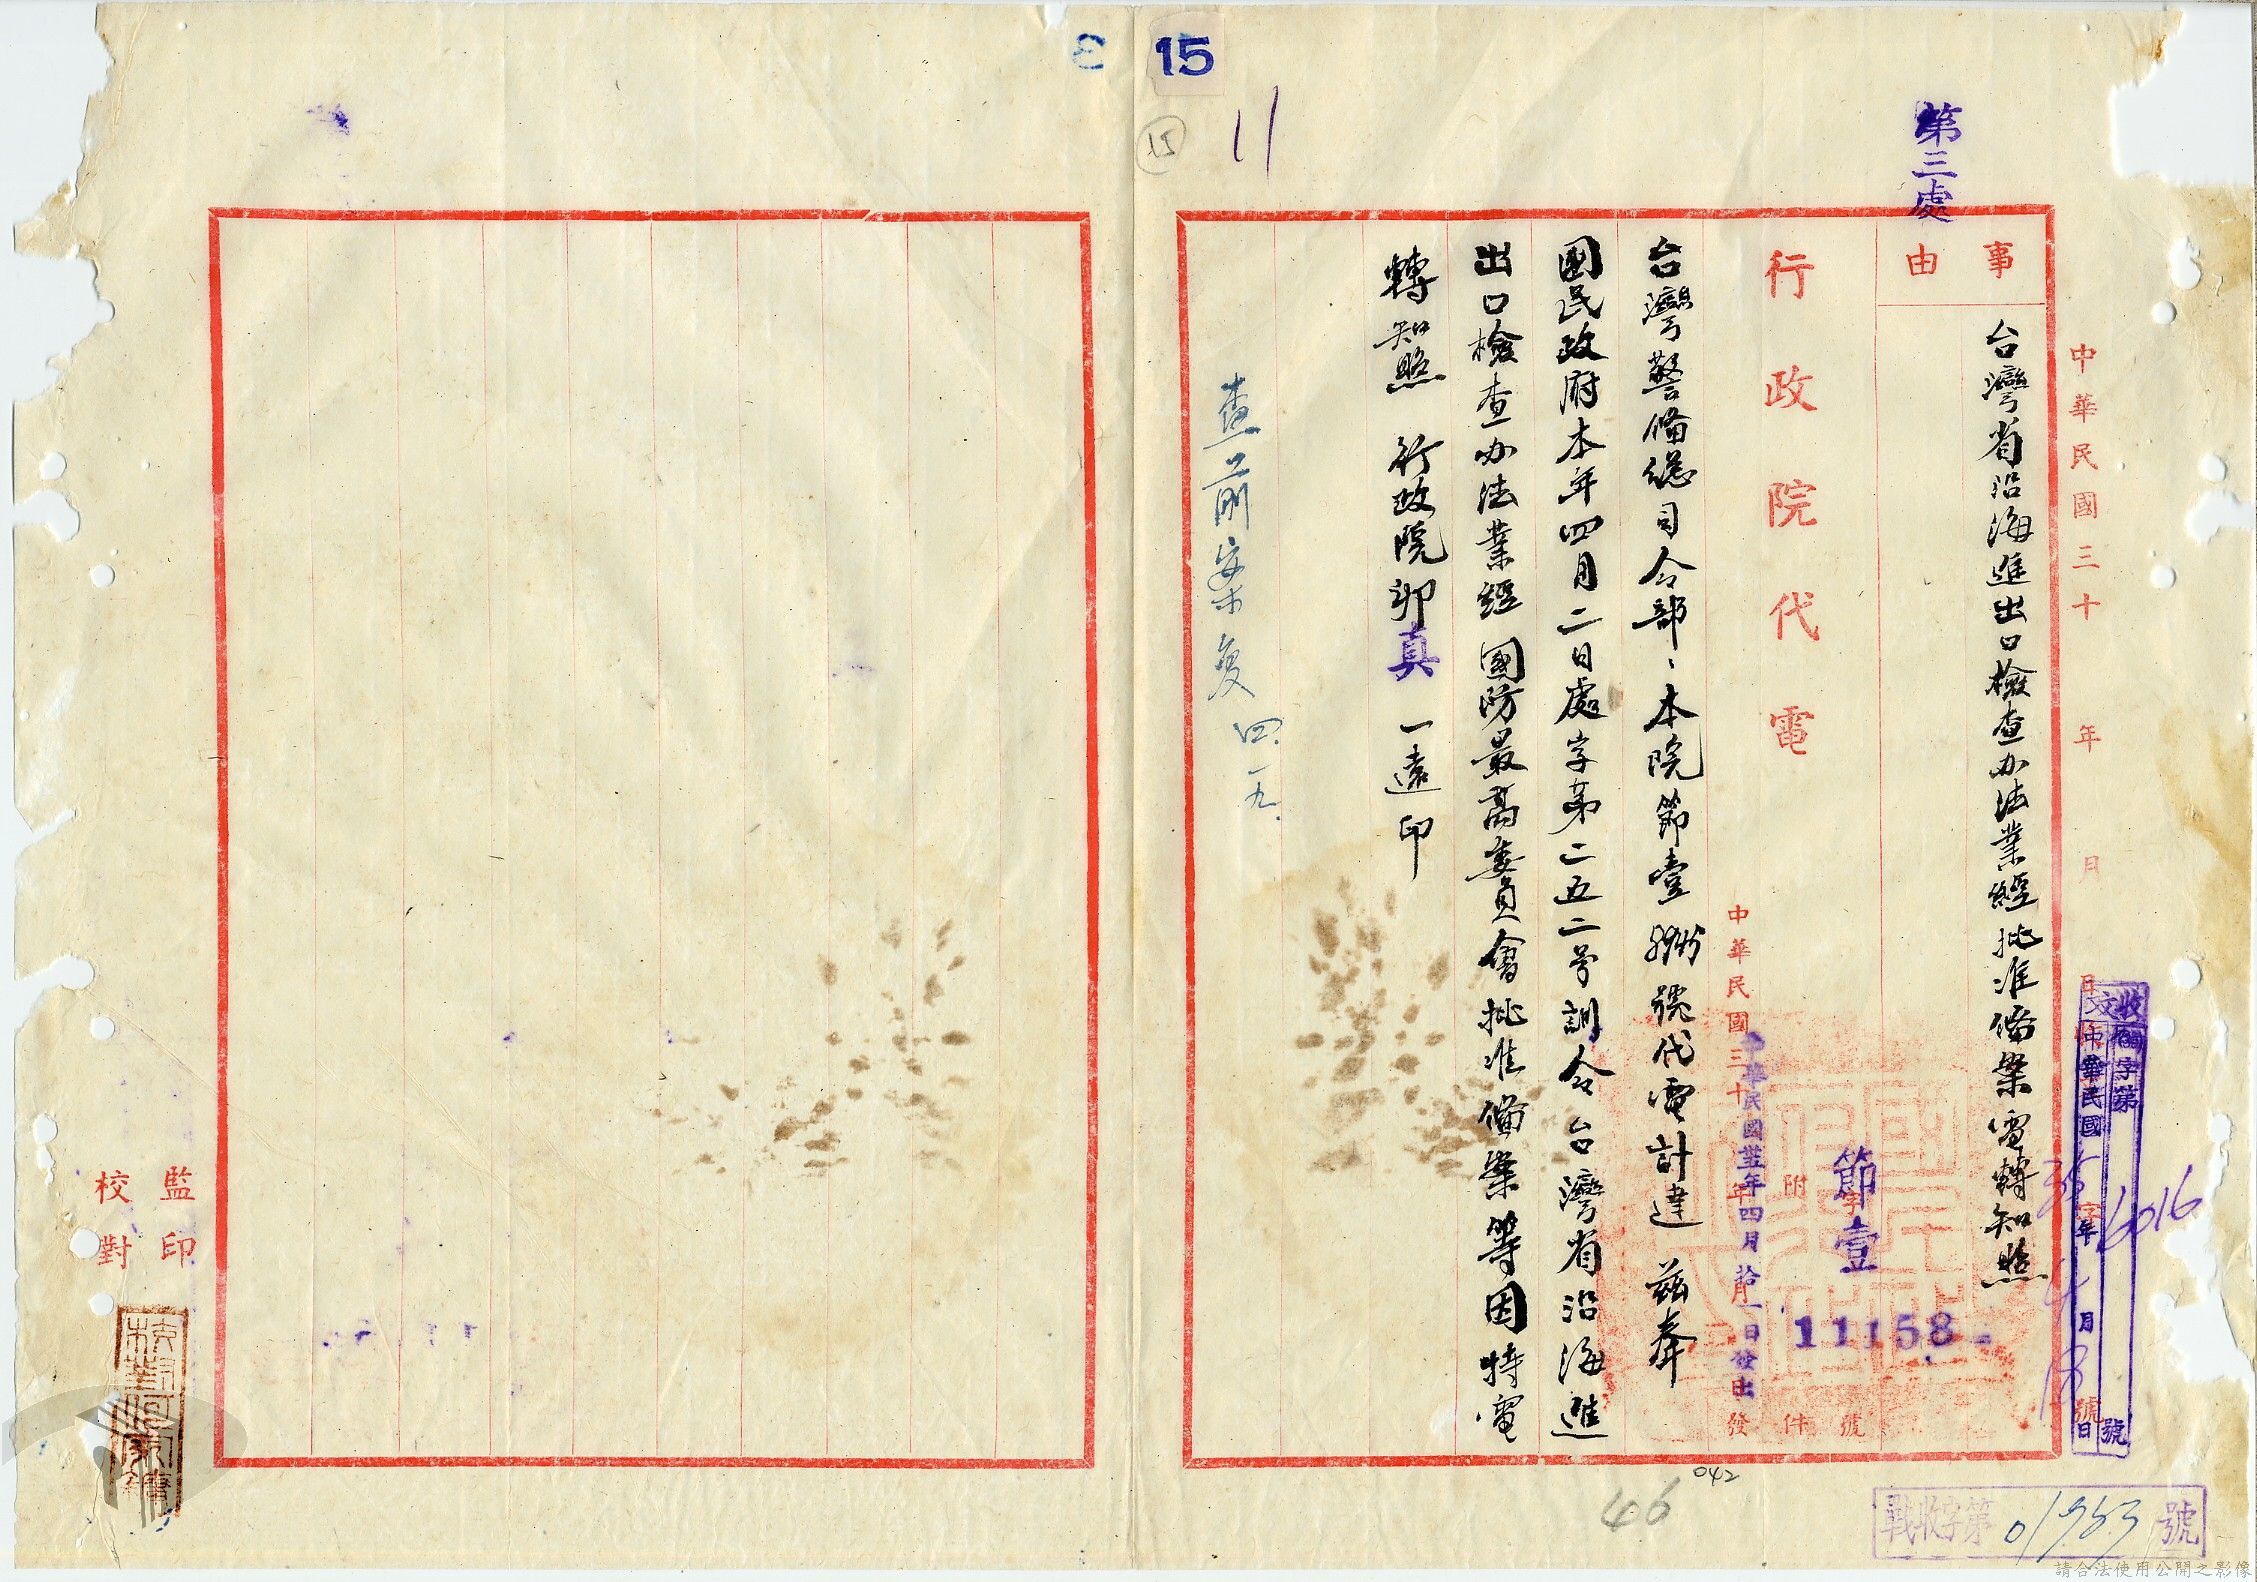 15
15
11
第三處
中華民國三十　年　月　日
收文
字第6016號
中華民國35年4月18日
事由
台灣省沿海進出口檢查办法業經批准備案電轉知照
行政院代電
節壹字
11158
附件　號
中華民國三十　年　月　日發
中華民國叁拾五年四月拾一日發出
台灣警備總司令部、本院節壹　號代電計達　茲奉
國民政府本年四月二日處字第二五二号訓令台灣省沿海進
出口檢查办法業經　國防最高委員會批准備案等因特電
轉知照　行政院卯真　一遠印
查前案复　四.一九.
監印
校對
042
46
戰收字第01953號
請合法使用公開之影像